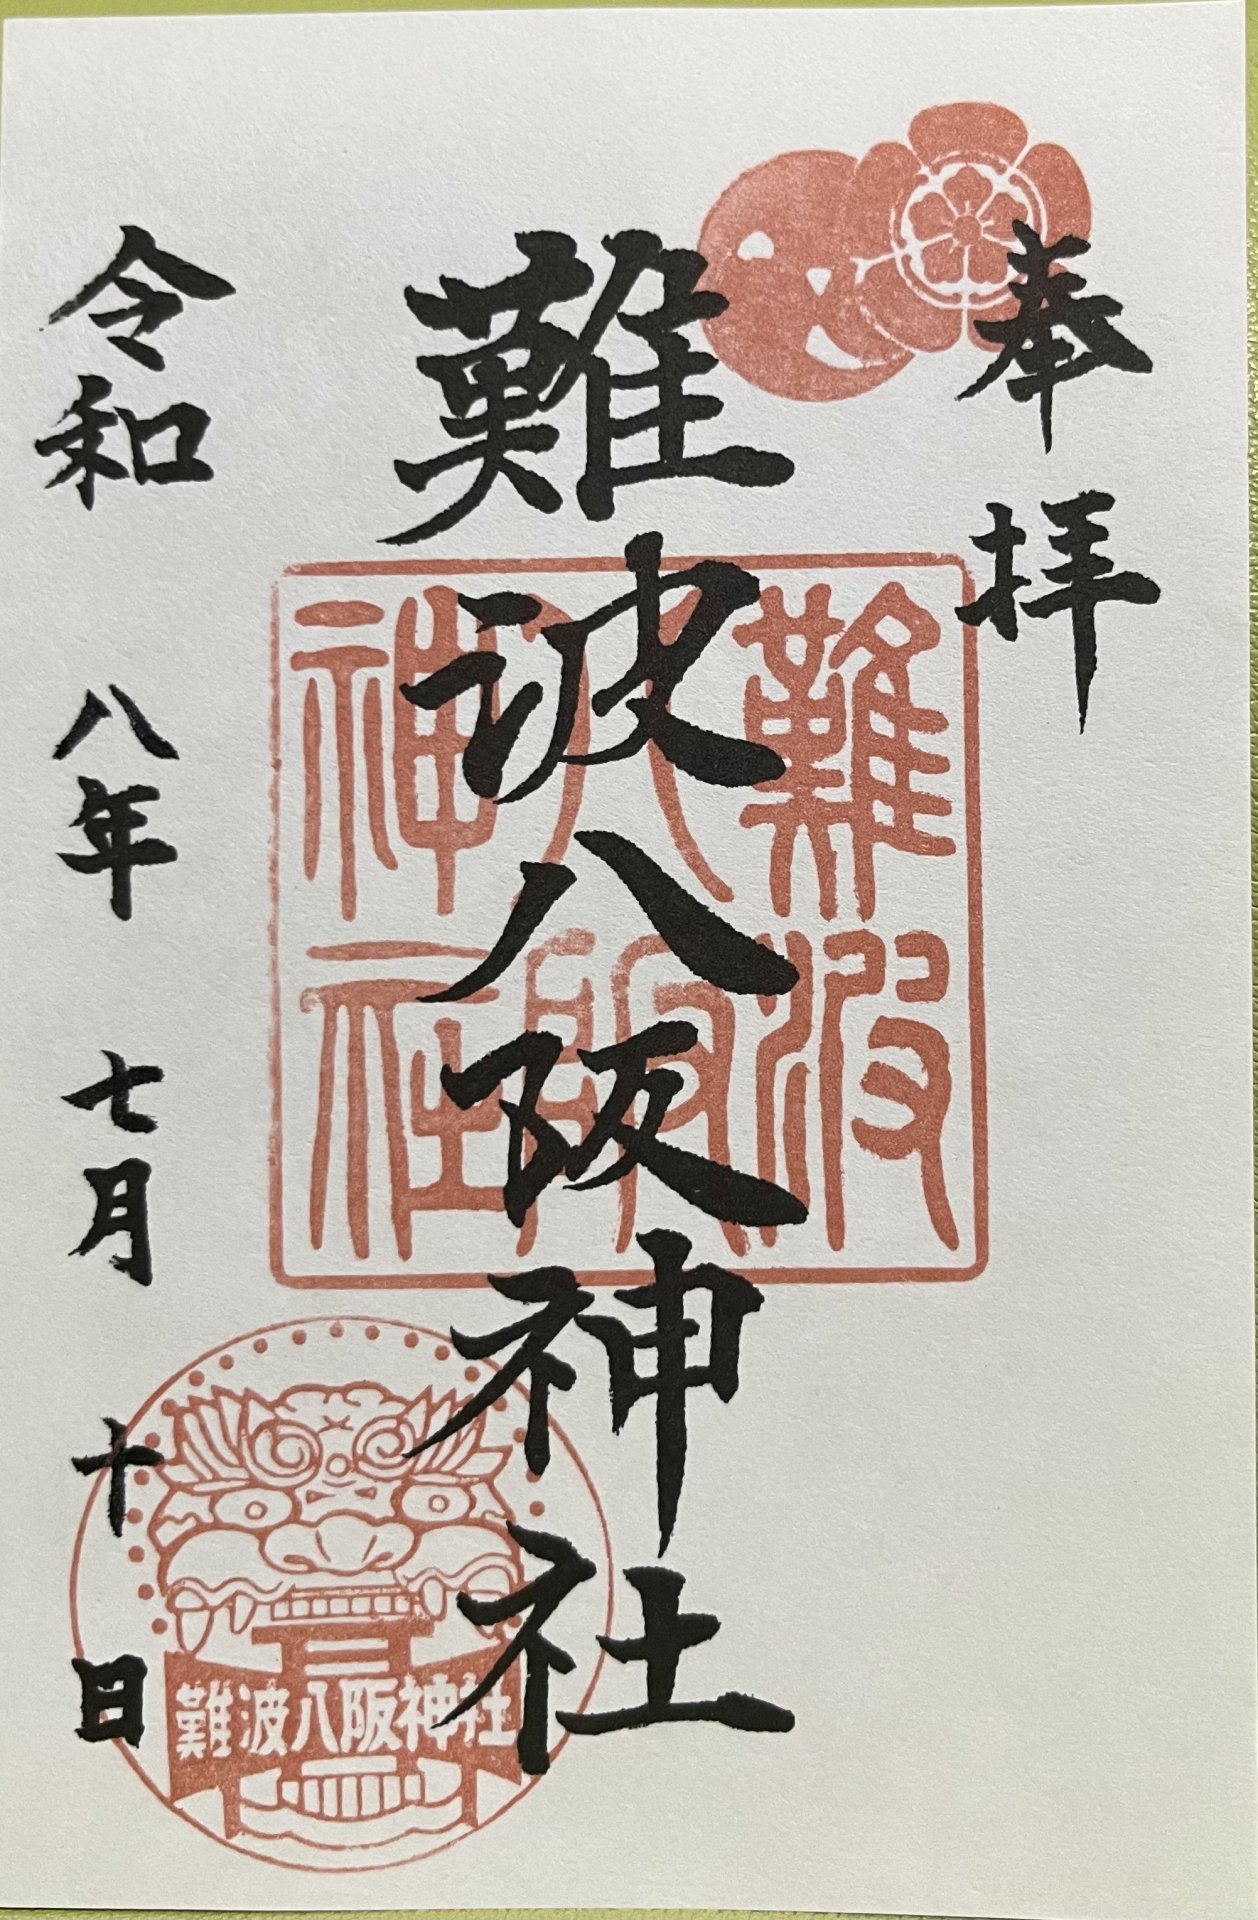 奉拝
難波八阪神社
難波
八阪
神社
令和 八年 七月 十日
難波八阪神社